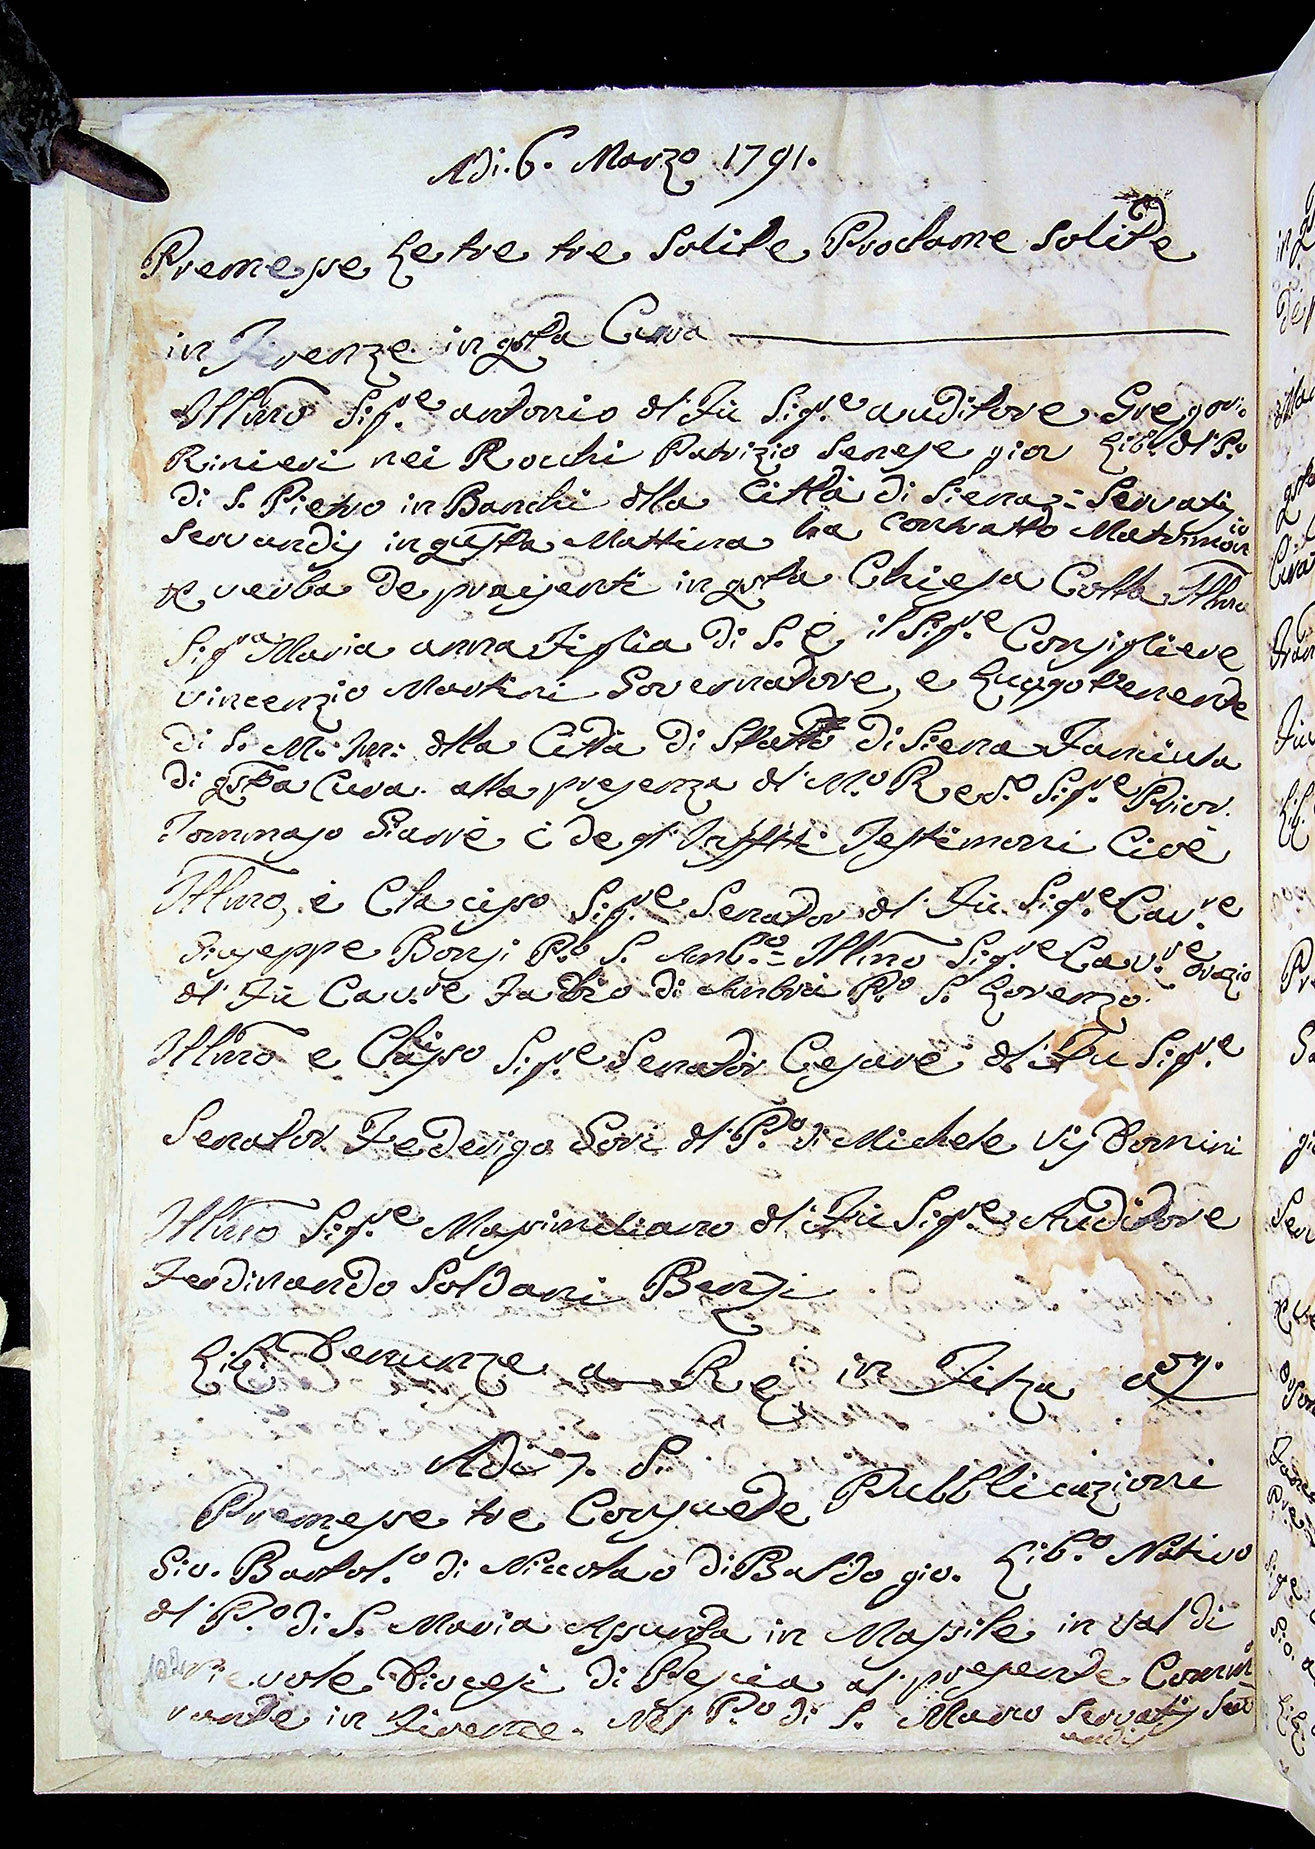 Adi. 6. Marzo 1791.
Premesse Le tre tre Solite Proclame Solite
in Firenze in qsta Cura
Illmo Sigre. antonio dl Fù Sigre auditore Gregorio
Rinieri nei Rocchi Patrizio Senese giov Lib.o dl P.o
di S. Pietro in Banchi dlla Città di Siena = Servatij
Servandij in questa Mattina ha contratto Matrimonio
P verba de presenti in qsta Chiesa Colla Illma
Sigra Maria anna Figlia di S. E il Sigre Consigliere
Vincenzio Martini Governatore, e Luogotenente
di S. M. dlla Città di Stato di Siena Fanciula
di qsta Cura. alla presenza dl M.o R e S.o Sigre Prior.
Tommaso e de gl' Infftti Testimoni Cioè
Illmo, e Clacipso Sigre Senator dl Fù Sigre Cavre
Giuseppe Bonsi P.o S. Amb.o = Illmo Sigre Cavre Orazio
dl Fù Cavre Fabio di Ambra P.o S. Lorenzo.
Illmo e Sigre Senator Cesare dl Fù Sigre
Senator Federigo Gori dl P.o di Michele Visdomini
Illmo Sigre Massimiliano dl Fù Sigre Auditore
Ferdinando Soldani Benzi
Denunze a in Filza a 57.
Adi 7. S.
Premesse tre Consuete Pubblicazioni
Gio. Bartol.o di Niccolao di Baldo gio. Lib.o Nativo
dl P.o di S. Maria Assunta in Massile in Val di
Nievole Diocesi di Pescia al presente Comm
rante in Firenze. Nel P.o di S. Marco Servatij Serv
andij